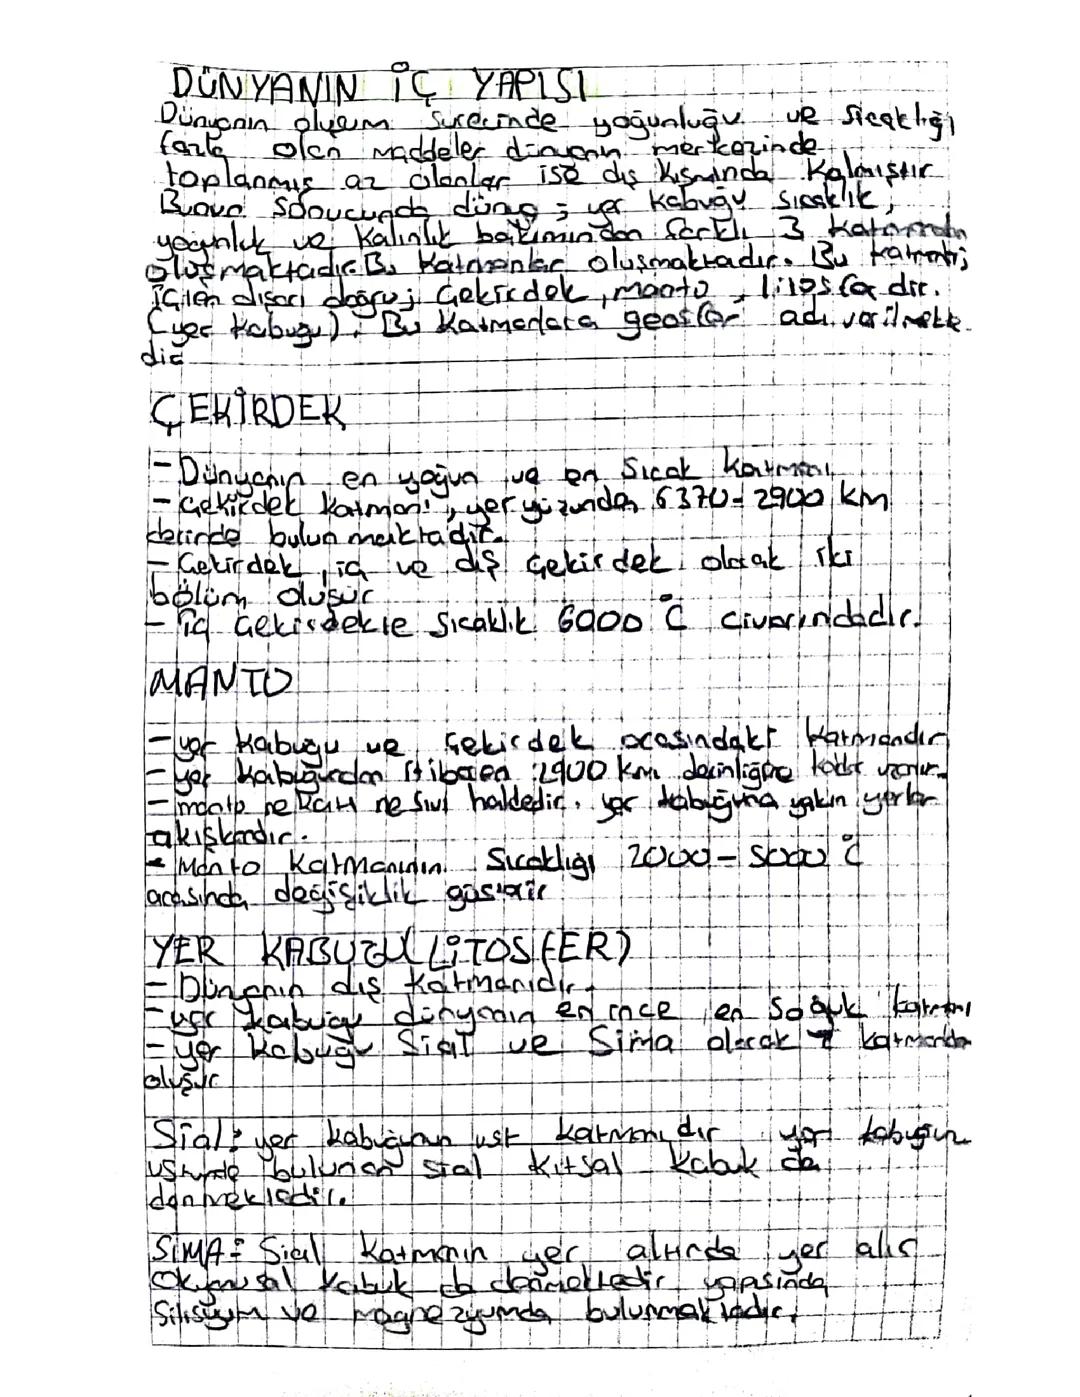 DÜNYANIN İÇ YAPISI
Dünyanın oluşum sürecinde yoğunluğu ve sıcaklığı
fazla olan maddeler dünyanın merkezinde
toplanmış az olanlar ise dış kısmında kalmıştır
Bunun sonucunda dünya ; yer kabuğu sıcaklık,
yoğunluk ve kalınlık bakımından farklı 3 katmandan
oluşmaktadır. Bu katmanlar oluşmaktadır. Bu
içten dışarı doğru; Çekirdek, manto, litosferdir.
(yer kabuğu). Bu katmanlara geosfer adı verilmekte
dir
ÇEKİRDEK
- Dünyanın en yoğun ve en sıcak katmanı
- Çekirdek katmanı, yer yüzünden 6370-2900 km
derinde bulunmaktadır.
- Çekirdek, iç ve dış çekirdek olarak iki
bölüm oluşur
- iç çekirdekte sıcaklık 6000 °C civarındadır.
MANTO
- yer kabuğu ve çekirdek arasındaki katmandır
- yer kabuğundan itibaren 2900 km derinliğine kadar uzanır.
- manto ne katı ne sıvı haldedir. yer kabuğuna yakın yerler
akışkandır.
- Manto katmanının sıcaklığı 2000-5000 °C
arasında değişiklik gösterir
YER KABUĞU (LİTOSFER)
- Dünyanın dış katmanıdır.
- yer kabuğu dünyanın en ince en soğuk katmanı
- yer kabuğu Sial ve Sima olarak 2 katmandan
oluşur
Sial: yer kabuğunun üst katmanıdır yer kabuğun
üstünde bulunan sial kıtsal kabuk da
denmektedir.
SİMA: Sial katmanın yer altında yer alır
Okyanusal kabuk da denmektedir yapısında
Silisyum ve magnezyumda bulunmaktadır.